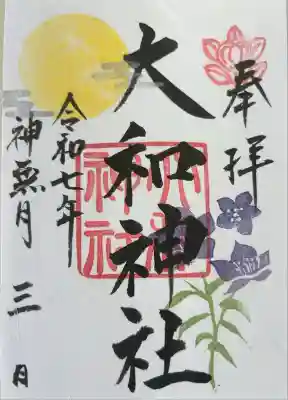 奉拝
大和神社
大和神社
令和七年
神無月 三 日